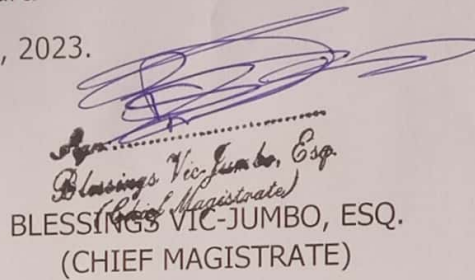 , 2023.
Sgn..................
Blessings Vic-Jumbo, Esq.
(Chief Magistrate)
BLESSINGS VIC-JUMBO, ESQ.
(CHIEF MAGISTRATE)